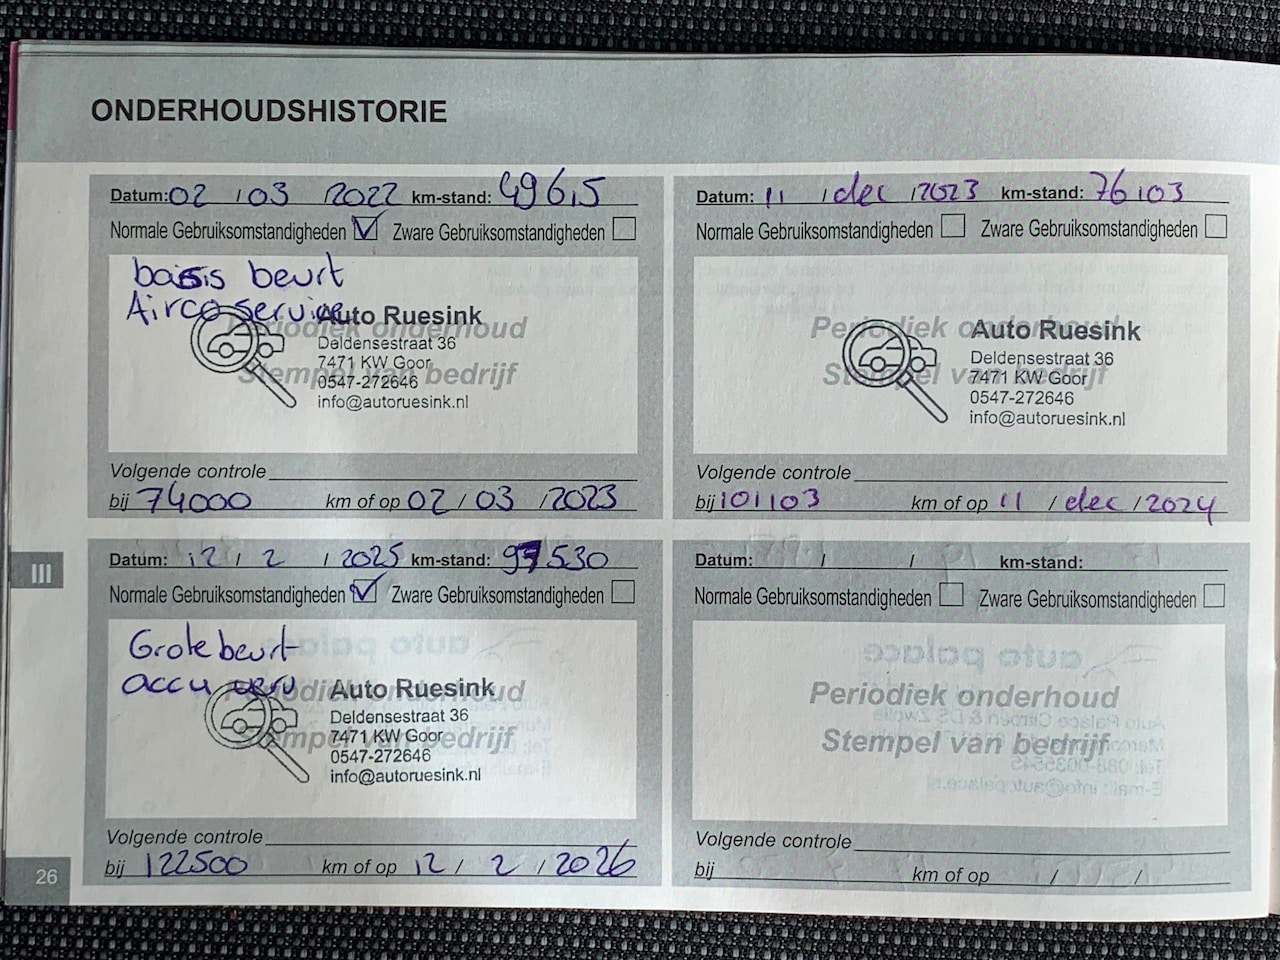 ONDERHOUDSHISTORIE
Datum: 02 / 03 / 2022 km-stand: 49615
Normale Gebruiksomstandigheden Zware Gebruiksomstandigheden
basis beurt
Airco service
Periodiek onderhoud
Stempel van bedrijf
Auto Ruesink
Deldensestraat 36
7471 KW Goor
0547-272646
info@autoruesink.nl
Volgende controle
bij 74000 km of op 02 / 03 / 2023
Datum: 11 / dec / 2023 km-stand: 76103
Normale Gebruiksomstandigheden Zware Gebruiksomstandigheden
Periodiek onderhoud
Stempel van bedrijf
Auto Ruesink
Deldensestraat 36
7471 KW Goor
0547-272646
info@autoruesink.nl
Volgende controle
bij 101103 km of op 11 / dec / 2024
Datum: 12 / 2 / 2025 km-stand: 97530
Normale Gebruiksomstandigheden Zware Gebruiksomstandigheden
Grote beurt
accu
Periodiek onderhoud
Stempel van bedrijf
Auto Ruesink
Deldensestraat 36
7471 KW Goor
0547-272646
info@autoruesink.nl
Volgende controle
bij 122500 km of op 12 / 2 / 2026
Datum: / / km-stand:
Normale Gebruiksomstandigheden Zware Gebruiksomstandigheden
Periodiek onderhoud
Stempel van bedrijf
Volgende controle
bij km of op / /
III
26